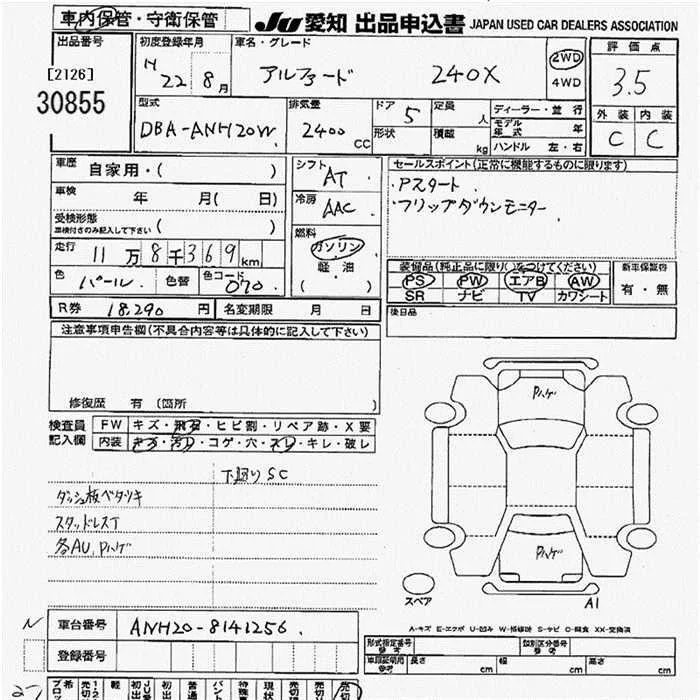 車内保管・守衛保管 JU 愛知 出品申込書 JAPAN USED CAR DEALERS ASSOCIATION
出品番号 初度登録年月 車名・グレード 評価点
[2126] H 22 8月 アルファード 240X 2WD 3.5
30855 4WD
型式 排気量 ドア 5 定員 人 ディーラー・並行 外装 内装
DBA-ANH20W 2400 CC 形状 積載 kg モデル年式 年 C C
ハンドル 左・右
車歴 自家用・( ) シフト AT セールスポイント(正常に機能するものに限ります)
車検 年 月( 日) 冷房 AAC ・Pスタート
受検形態 ( ) ・フリップダウンモニター
車検付きのみ記入して下さい
燃料
走行 11万8千369km ガソリン
軽・油
色 パール 色替 色コード 070 ( )
装備品(純正品に限り○をつけてください) 新車保証書
PS PW エアB AW 有・無
SR ナビ TV カワシート
R券 18,290円 名変期限 月 日 後日品
注意事項申告欄(不具合内容等は具体的に記入して下さい)
修復歴 有(箇所 )
検査員 FW キズ・飛石・ヒビ割・リペア跡・X要
記入欄 内装 キズ・汚れ・コゲ・穴・スレ・キレ・破レ
下廻りSC
ダッシュ板ベタツキ
スタッドレスT
各AU,Pハゲ
Pハゲ
Pハゲ
スペア A1
A-キズ E-エクボ U-凹み W-補修跡 S-サビ C-腐食 XX-交換済
車台番号 ANH20-8141256
登録番号
形式指定番号 参考 類別区分番号 参考
車庫証明用 参考 長さ cm 幅 cm 高さ cm